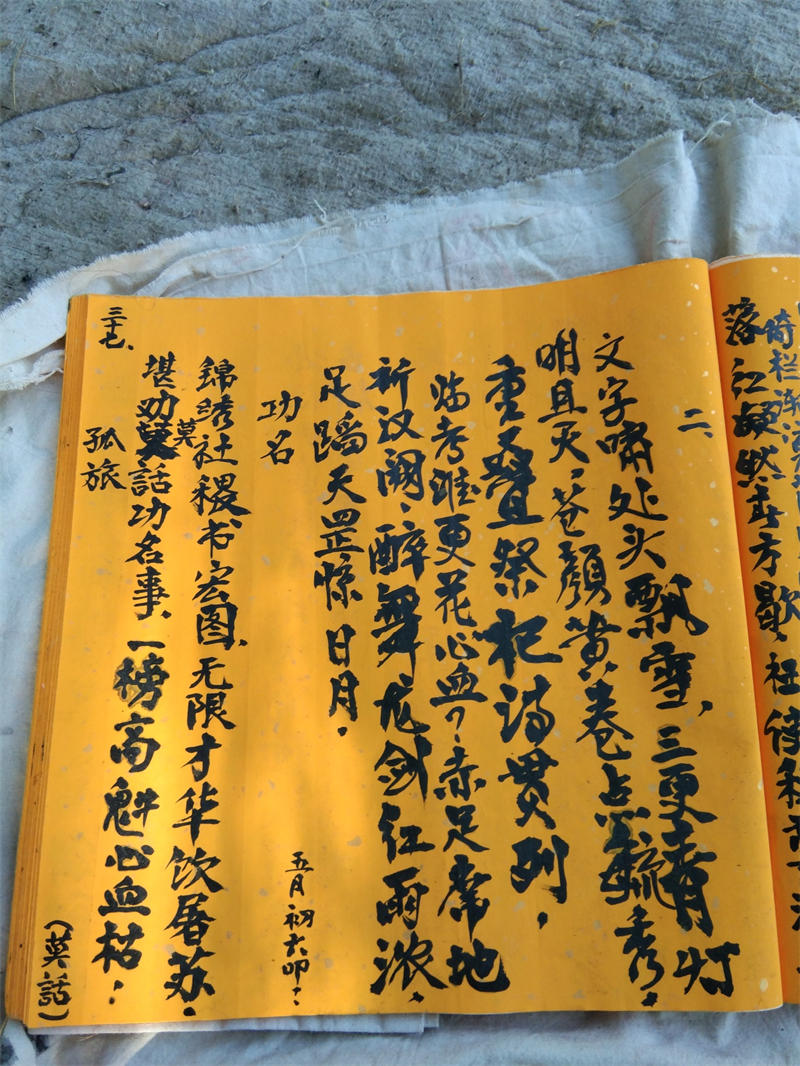 落红
倚栏
二、
文字啸处头飘雪，三更青灯
明且灭。苍颜黄卷点疏秀。
重叠祭祀诗贯列，
临考谁更花心血？赤足席地
祈汉阙，醉舞龙剑红雨浓。
足蹈天罡惊日月。
五月初六卯：
功名
锦绣社稷书宏图，无限才华饮屠苏。
堪劝莫話功名事、一榜高魁心血枯。
莫
（莫話）
三十七、
孤旅